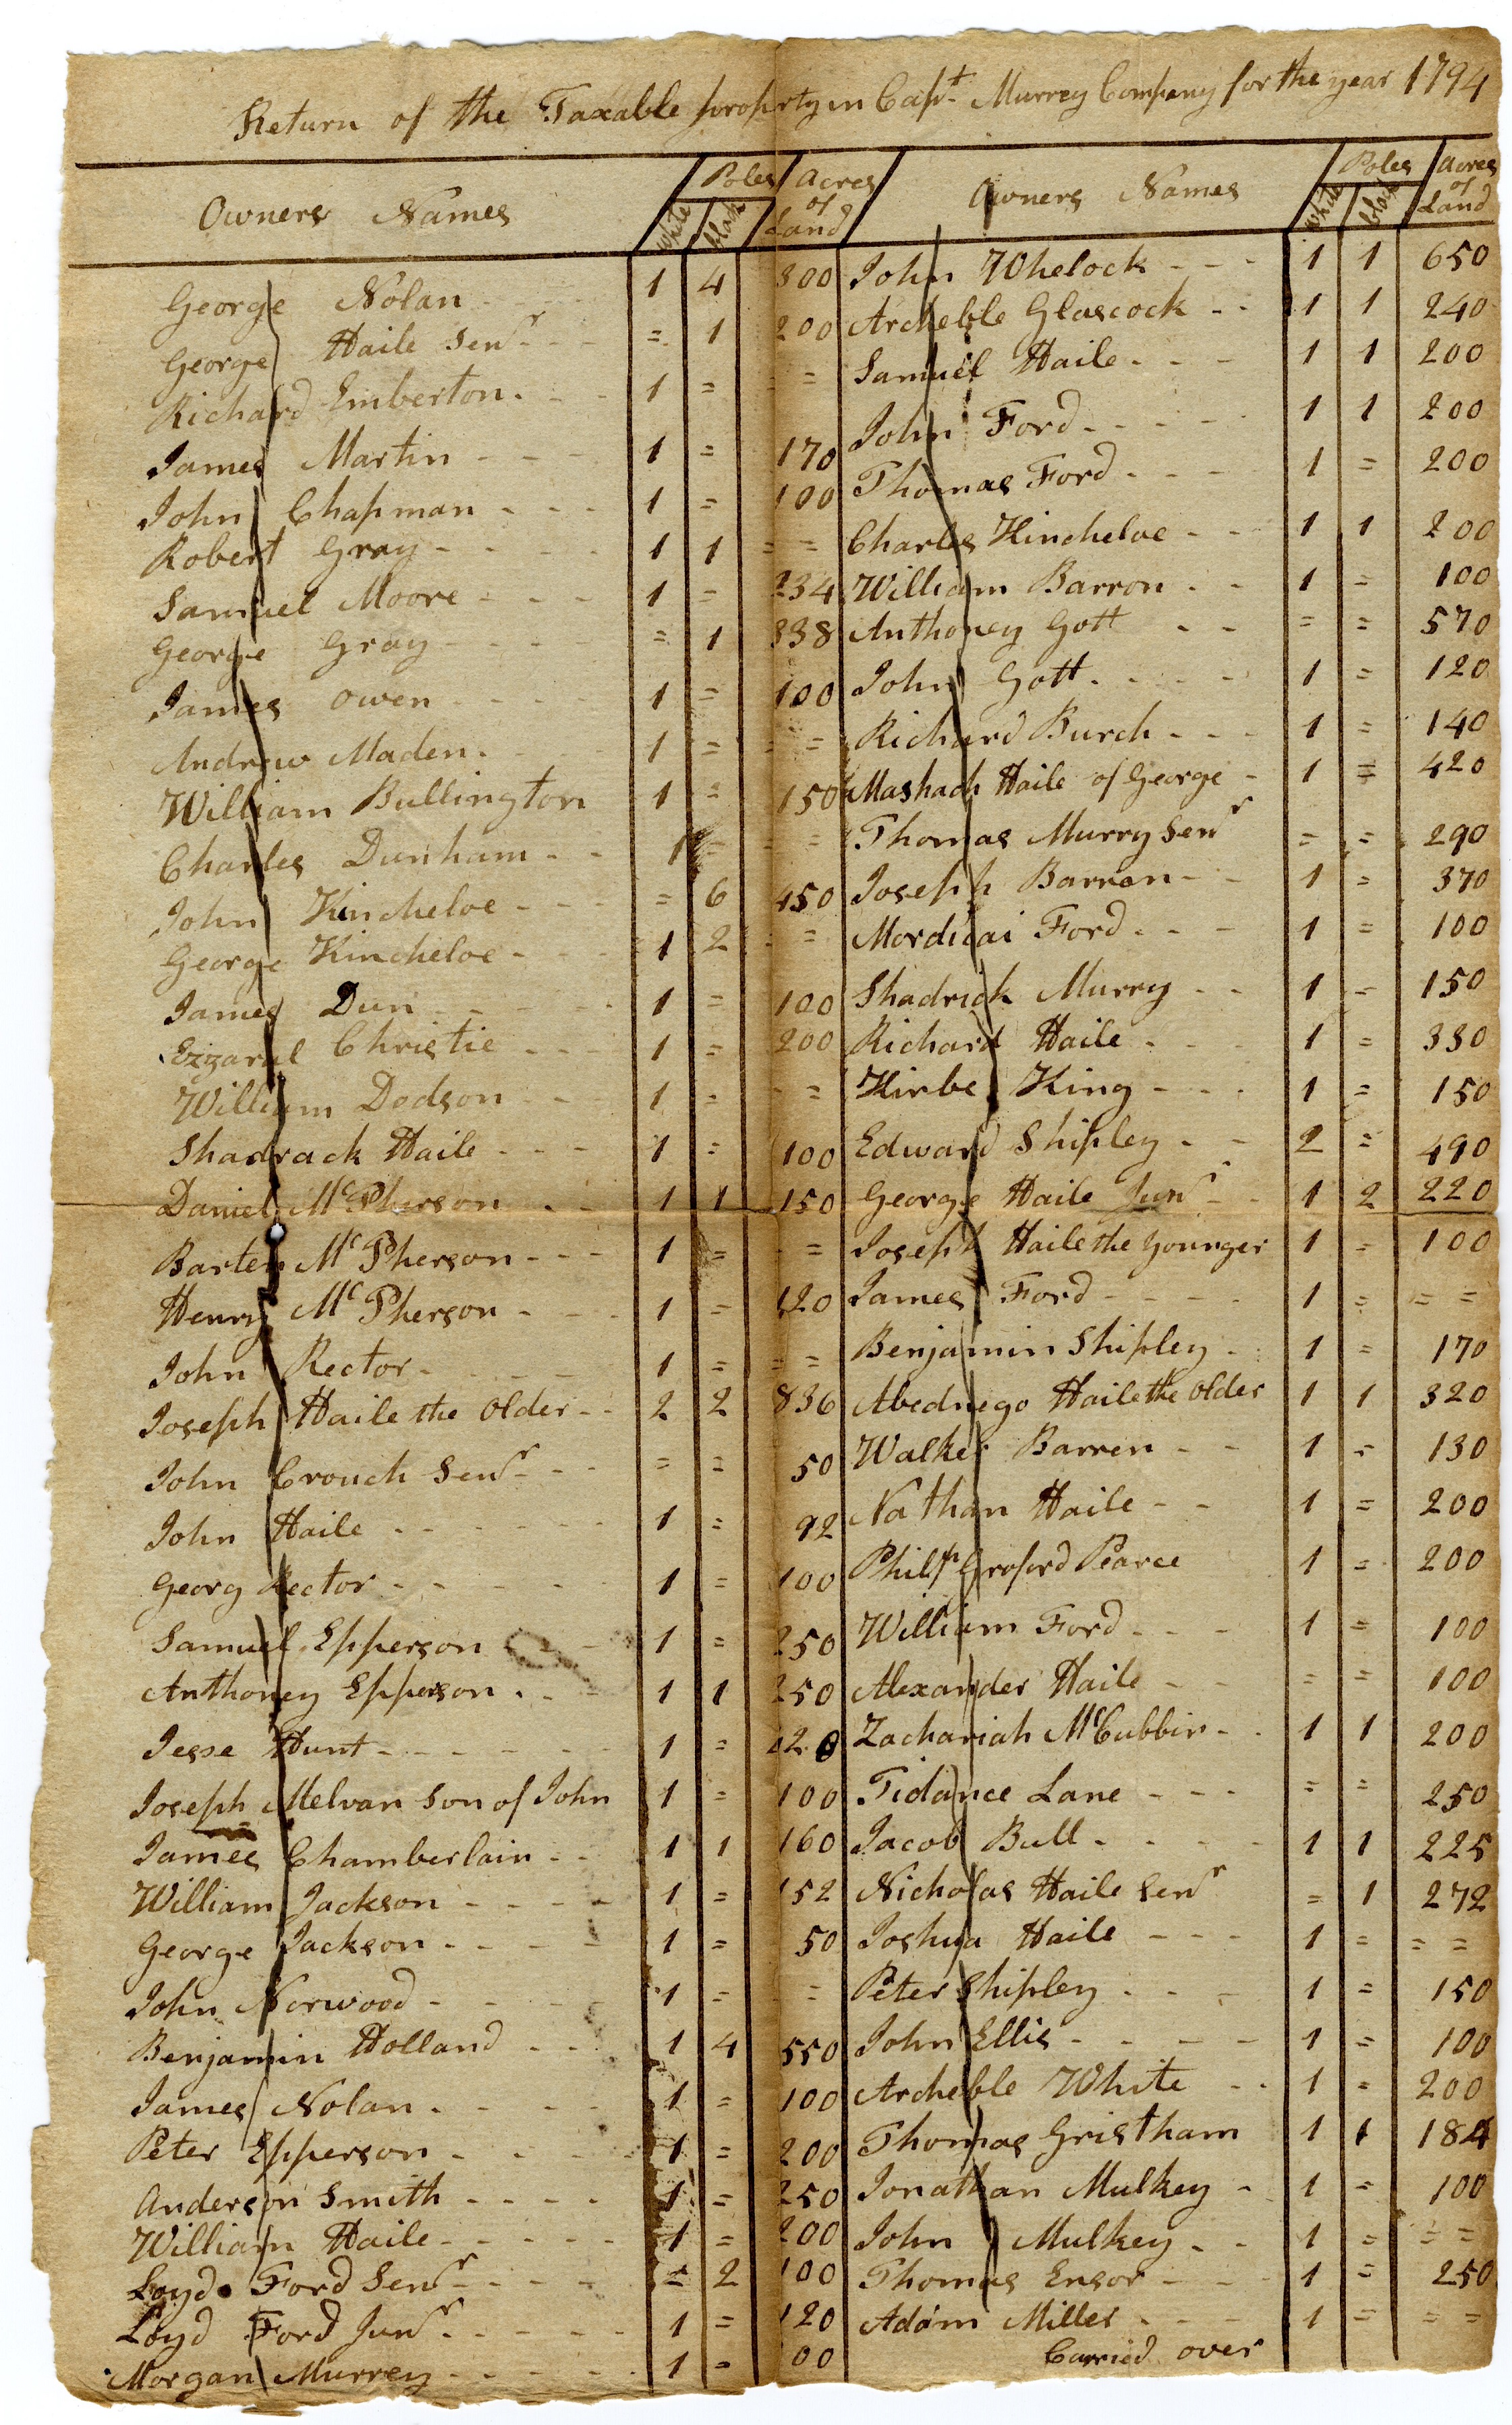 Return of the Taxable property in Capt Murrey Company for the year 1794
Owners Names Poles white black Acres of Land
George Nolan 1 4 300
George Haile Senr = 1 200
Richard Emberton 1 = =
James Martin 1 = 170
John Chapman 1 = 100
Robert Gray 1 1 = =
Samuel Moore 1 = 234
George Gray = 1 338
James Owen 1 = 100
Andrew Maden 1 = =
William Bullington 1 = 150
Charles Dunham 1 = =
John Kincheloe = 6 450
George Kincheloe 1 2 =
James Dun 1 = 100
Ezzaral Christie 1 = 200
William Dodson 1 = =
Shadrack Haile 1 = 100
Daniel McPherson 1 1 150
Barten McPherson 1 = =
Henry McPherson 1 = 120
John Rector 1 = = =
Joseph Haile the Older 2 2 836
John Crouch Senr = = 50
John Haile 1 = 92
Georg Rector 1 = 100
Samuel Epperson 1 = 250
Anthoney Epperson 1 1 250
Jesse Hunt 1 = 420
Joseph Melvan Son of John 1 = 100
James Chamberlain 1 1 160
William Jackson 1 = 152
George Jackson 1 = 50
John Norwood 1 = =
Benjamin Holland 1 4 550
James Nolan 1 = 100
Peter Epperson 1 = 200
Anderson Smith 1 = 250
William Haile 1 = 200
Loyd Ford Senr = 2 100
Loyd Ford Junr 1 = 120
Morgan Murrey 1 = 00
Owners Names Poles white black Acres of Land
John Whelock 1 1 650
Archeble Glascock 1 1 240
Samuel Haile 1 1 200
John Ford 1 1 200
Thomas Ford 1 = 200
Charles Kincheloe 1 1 200
William Barron 1 = 100
Anthoney Gott = = 570
John Gott 1 = 120
Richard Burch 1 = 140
Mashach Haile of George 1 = 420
Thomas Murry Senr = = 290
Joseph Barron 1 = 370
Mordicai Ford 1 = 100
Shadrick Murry 1 = 150
Richard Haile 1 = 330
Kirbe King 1 = 150
Edward Shipley 2 = 490
George Haile Junr 1 2 220
Joseph Haile the Younger 1 = 100
James Ford 1 = = =
Benjamin Shipley 1 = 170
Abednego Haile the Older 1 1 320
Walker Barren 1 = 130
Nathan Haile 1 = 200
Philip Pearce 1 = 200
William Ford 1 = 100
Alexander Haile = = 100
Zachariah McCubbin 1 1 200
Tidance Lane = = 250
Jacob Bull 1 1 225
Nicholas Haile Senr = 1 272
Joshua Haile 1 = = =
Peter Shipley 1 = 150
John Ellis 1 = 100
Archeble White 1 = 200
Thomas Gristham 1 1 184
Jonathan Mulkey 1 = 100
John Mulkey 1 = = =
Thomas Ensor 1 = 250
Adam Miller 1 = = =
Carried over